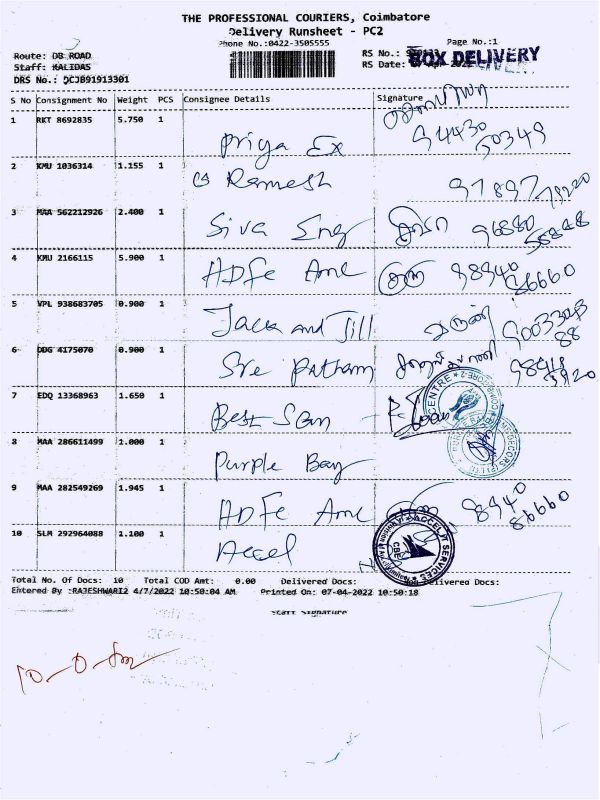 THE PROFESSIONAL COURIERS, Coimbatore
Delivery Runsheet - PC2
Phone No.:0422-3505555
Page No.:1
Route: DB ROAD
RS No.:
BOX DELIVERY
Staff: KALIDAS
RS Date: Apr
DRS No.: QCJB91913301
S No Consignment No Weight PCS Consignee Details Signature
1 RKT 8692835 5.750 1 Priya Ex 94430 50349
2 KMU 1036314 1.155 1 Ramesh 97897 78220
3 MAA 562212926 2.400 1 Siva Eng 96880
4 KMU 2166115 5.900 1 HDFC AMC 98940 86660
5 VPL 938683705 0.900 1 Jack and Jill அருண் 88
6 DDG 4175070 0.900 1 Sre Patham
7 EDQ 13368963 1.650 1 Best Scan
8 MAA 286611499 1.000 1 Purple Bay
9 MAA 282549269 1.945 1 HDFC AMC 98940 86660
10 SLM 292964088 1.100 1 Accel
Total No. Of Docs: 10 Total COD Amt: 0.00 Delivered Docs: Delivered Docs:
Entered By :RAJESHWARI2 4/7/2022 10:50:04 AM Printed On: 07-04-2022 10:50:18
Staff Signature